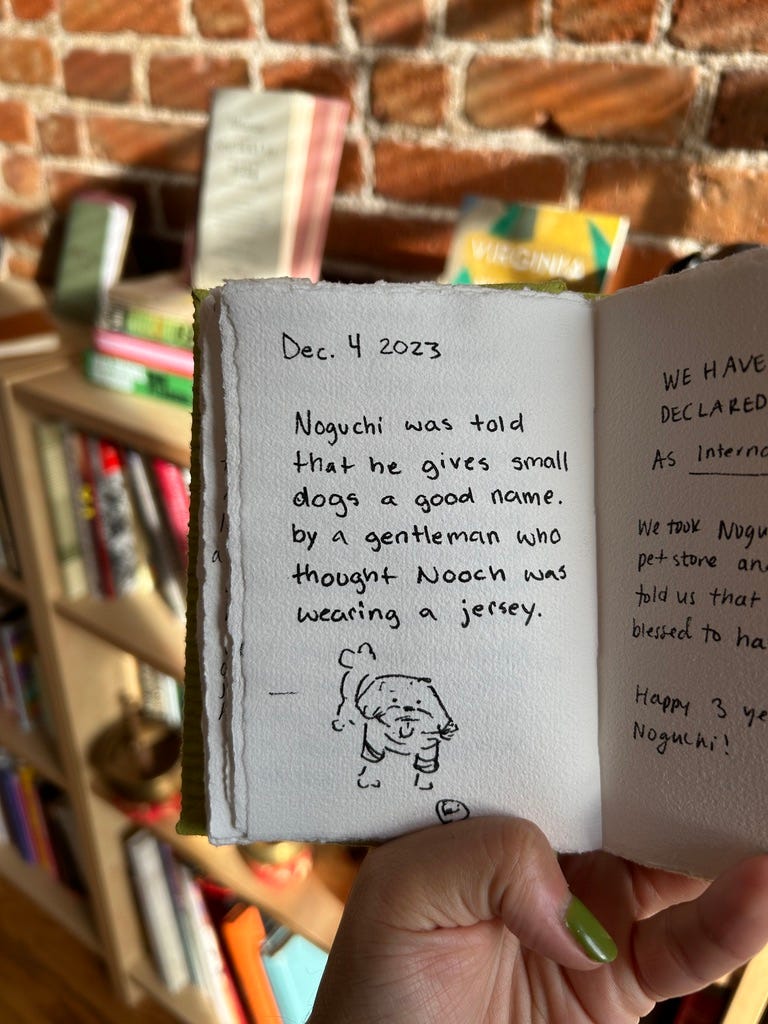 Dec. 4 2023
Noguchi was told
that he gives small
dogs a good name.
by a gentleman who
thought Nooch was
wearing a jersey.
E
WE HAVE
DECLARED
As Interna
We took Nogu
pet store an
told us that
blessed to ha
Happy 3 ye
Noguchi!
VIRGINIA